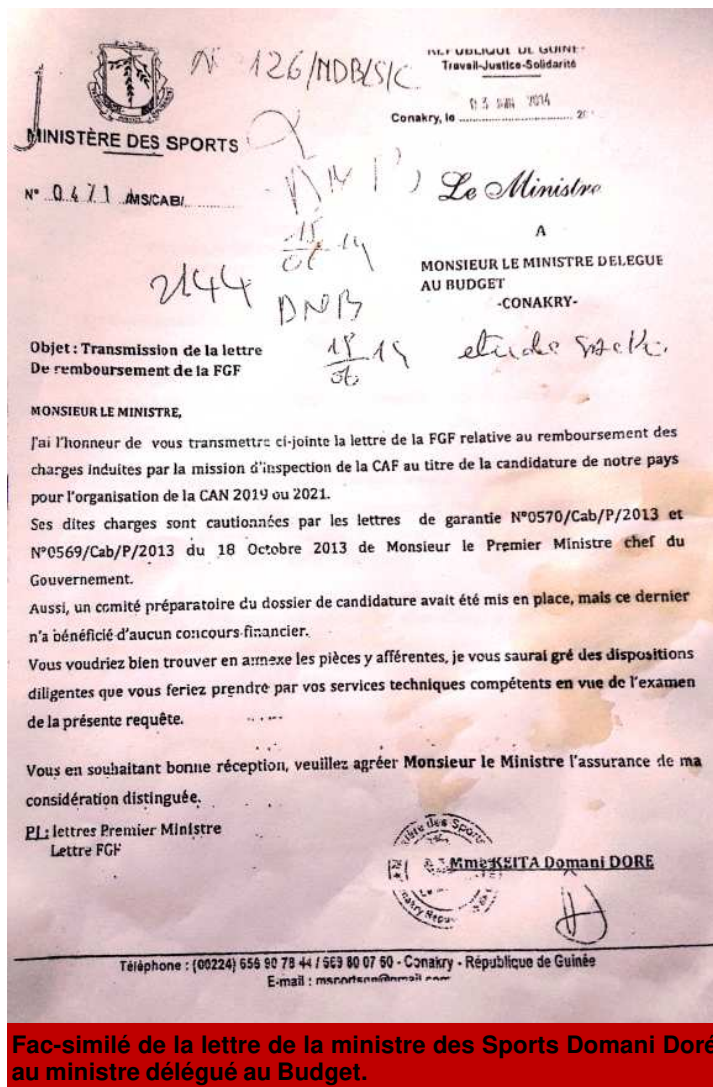 N° 126/MDB/S/C
REPUBLIQUE DE GUINEE
Travail-Justice-Solidarité
03 JUIN 2014
Conakry, le
MINISTÈRE DES SPORTS
N° 0471 /MS/CAB/
Le Ministre
A
MONSIEUR LE MINISTRE DELEGUE
AU BUDGET
-CONAKRY-
2144
DNB
Objet : Transmission de la lettre
De remboursement de la FGF
MONSIEUR LE MINISTRE,
J'ai l'honneur de vous transmettre ci-jointe la lettre de la FGF relative au remboursement des
charges induites par la mission d'inspection de la CAF au titre de la candidature de notre pays
pour l'organisation de la CAN 2019 ou 2021.
Ses dites charges sont cautionnées par les lettres de garantie N°0570/Cab/P/2013 et
N°0569/Cab/P/2013 du 18 Octobre 2013 de Monsieur le Premier Ministre chef du
Gouvernement.
Aussi, un comité préparatoire du dossier de candidature avait été mis en place, mais ce dernier
n'a bénéficié d'aucun concours financier.
Vous voudriez bien trouver en annexe les pièces y afférentes, je vous saurai gré des dispositions
diligentes que vous feriez prendre par vos services techniques compétents en vue de l'examen
de la présente requête.
Vous en souhaitant bonne réception, veuillez agréer Monsieur le Ministre l'assurance de ma
considération distinguée.
PJ : lettres Premier Ministre
Lettre FGF
Mme KEITA Domani DORE
Téléphone : (00224) 656 90 78 44 / 669 80 07 60 - Conakry - République de Guinée
E-mail :
Fac-similé de la lettre de la ministre des Sports Domani Doré
au ministre délégué au Budget.